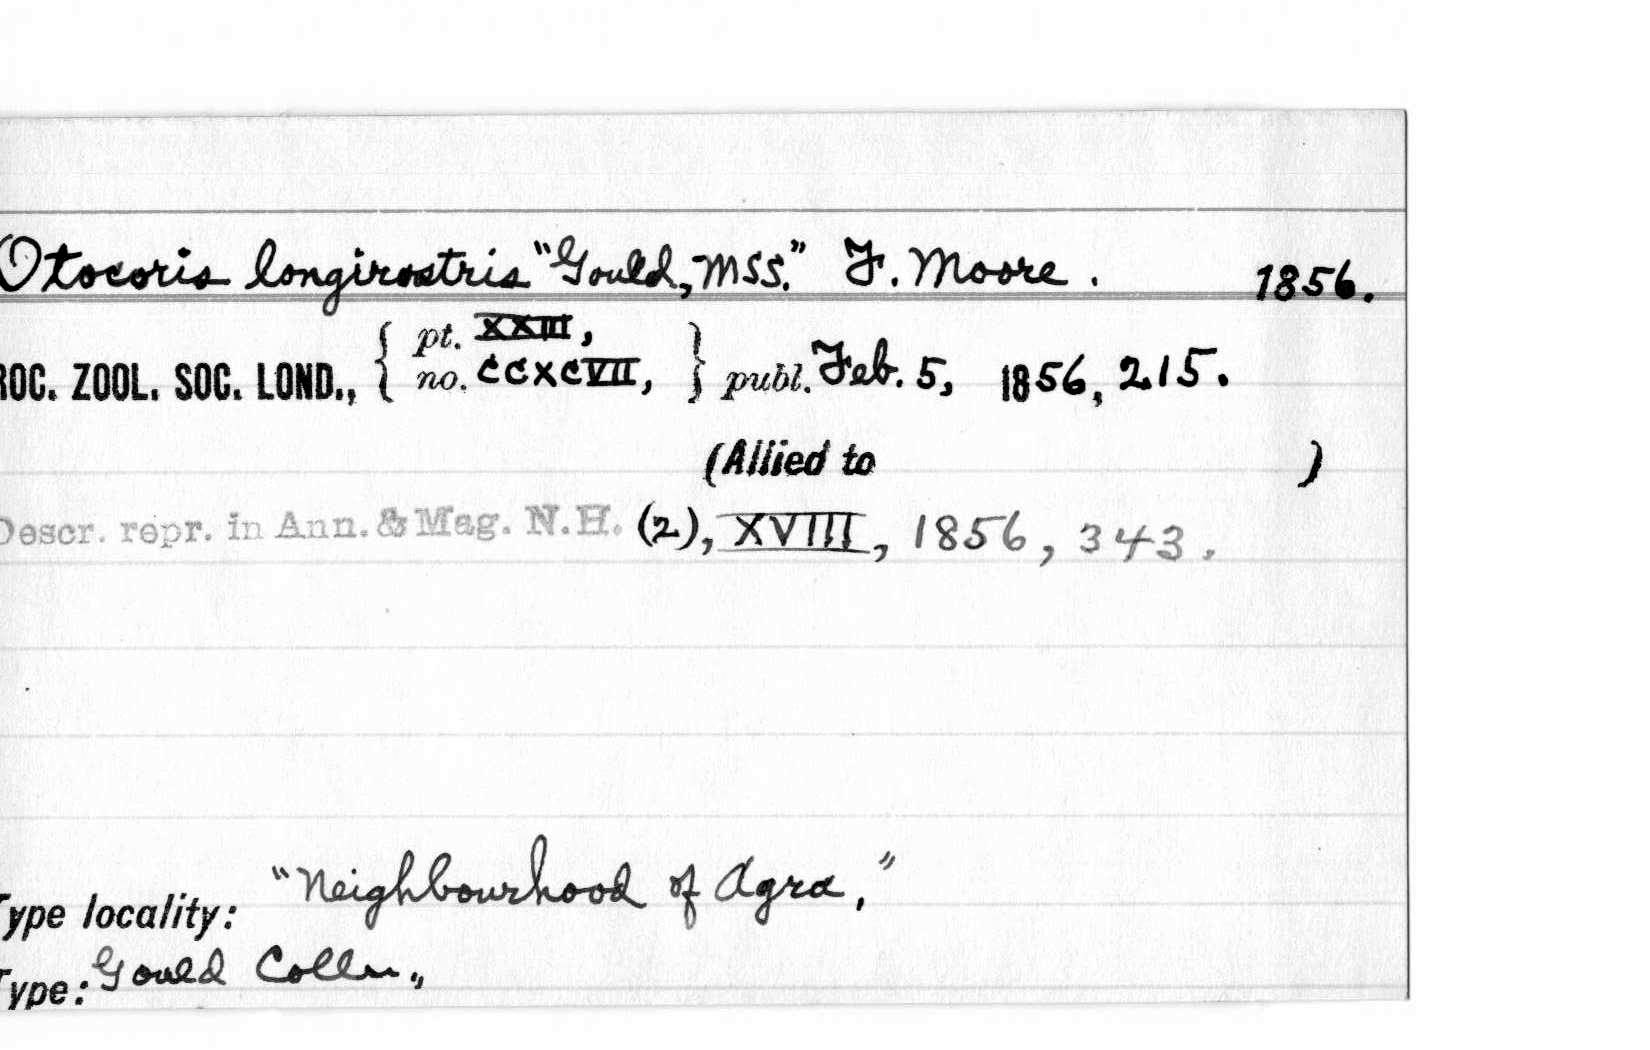 Otocoris longirostris "Gould, MSS." F. Moore. 1856.
ROC. ZOOL. SOC. LOND., { pt. XXIII, no. CCXCVII, } publ. Feb. 5, 1856, 215.
(Allied to )
Descr. repr. in Ann. & Mag. N.H. (2), XVIII, 1856, 343.
Type locality: "Neighbourhood of Agra,"
Type: Gould Colln.,